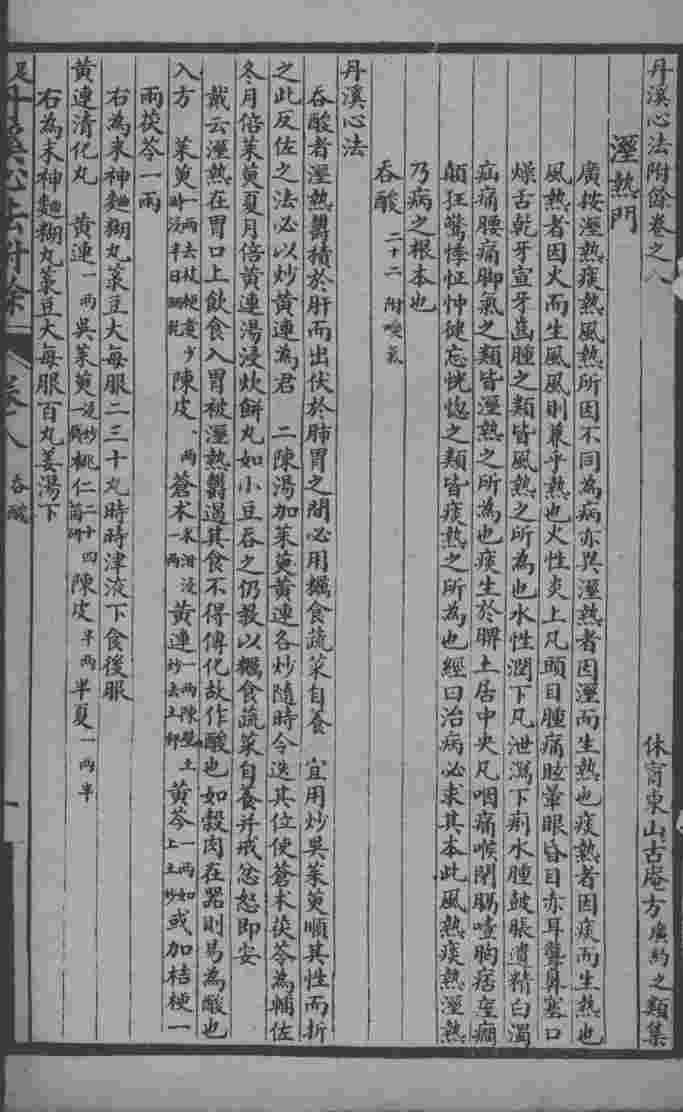 丹溪心法附餘卷之八
休甯東山古庵方廣約之類集
溼熱門
廣按溼熱痰熱風熱所因不同為病亦異溼熱者因溼而生熱也痰熱者因痰而生熱也
風熱者因火而生風風則兼乎熱也火性炎上凡頭目腫痛眩暈眼昏目赤耳聾鼻塞口
燥舌乾牙宣牙齒腫之類皆風熱之所為也水性潤下凡泄瀉下痢水腫鼓脹遺精白濁
疝痛腰痛腳氣之類皆溼熱之所為也痰生於脾土居中央凡咽痛喉閉膈噎胸痞壅癇
顛狂驚悸怔忡健忘恍惚之類皆痰熱之所為也經曰治病必求其本此風熱痰熱溼熱
乃病之根本也
吞酸 二十二 附噯氣
丹溪心法
吞酸者溼熱鬱積於肝而出伏於肺胃之間必用糲食蔬菜自養 宜用炒吳茱萸順其性而折
之此反佐之法必以炒黃連為君 二陳湯加茱萸黃連各炒隨時令迭其位使蒼朮茯苓為輔佐
冬月倍茱萸夏月倍黃連湯浸炊餅丸如小豆吞之仍教以糲食蔬菜自養并戒忿怒即安
戴云溼熱在胃口上飲食入胃被溼熱鬱遏其食不得傳化故作酸也如穀肉在器則易為酸也
入方 茱萸一兩去枝梗煮少時浸半日晒乾 陳皮一兩 蒼朮米泔浸一兩 黃連一兩陳壁土炒去土秤 黃芩一兩如上土炒 或加桔梗一
兩茯苓一兩
右為末神麯糊丸菉豆大每服二三十丸時時津液下食後服
黃連清化丸 黃連一兩 吳茱萸浸炒一錢 桃仁二十四箇研 陳皮半兩 半夏一兩半
右為末神麯糊丸菉豆大每服百丸姜湯下
丹溪心法附餘 卷八 吞酸 一